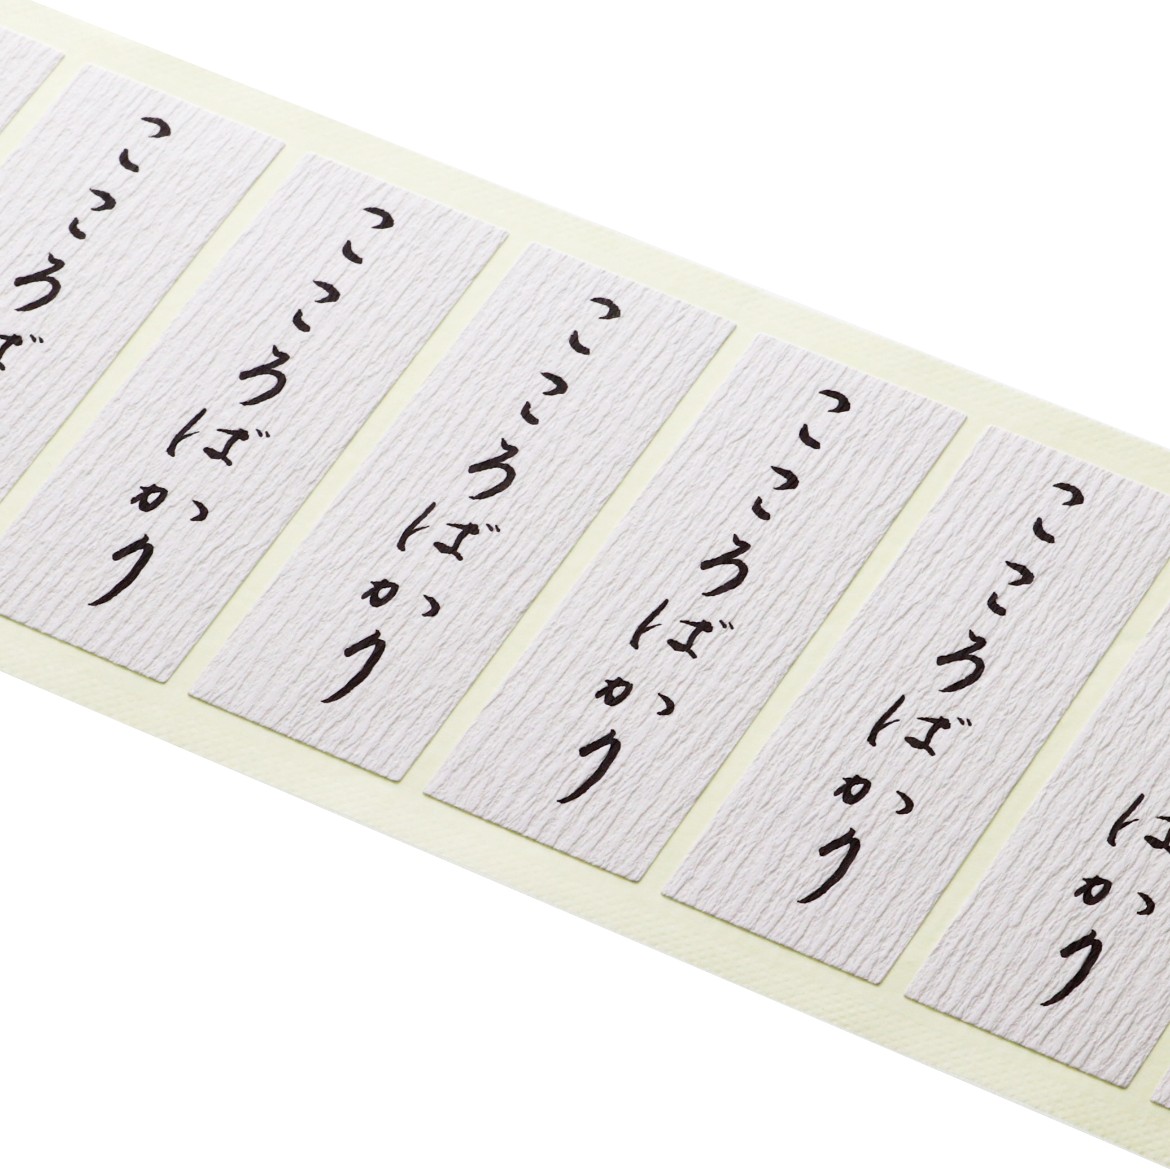 こころばか
こころばかり
こころばかり
こころばかり
こころばかり
ばかり